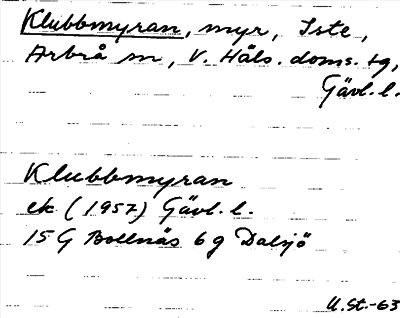 Klubbmyran, myr, Iste,
Arbrå sn, V. Häls. doms. tg,
Gävl. l.
Klubbmyran
ek (1957) Gävl. l.
15 G Bollnäs 6 g Dalsjö
U. St. -63